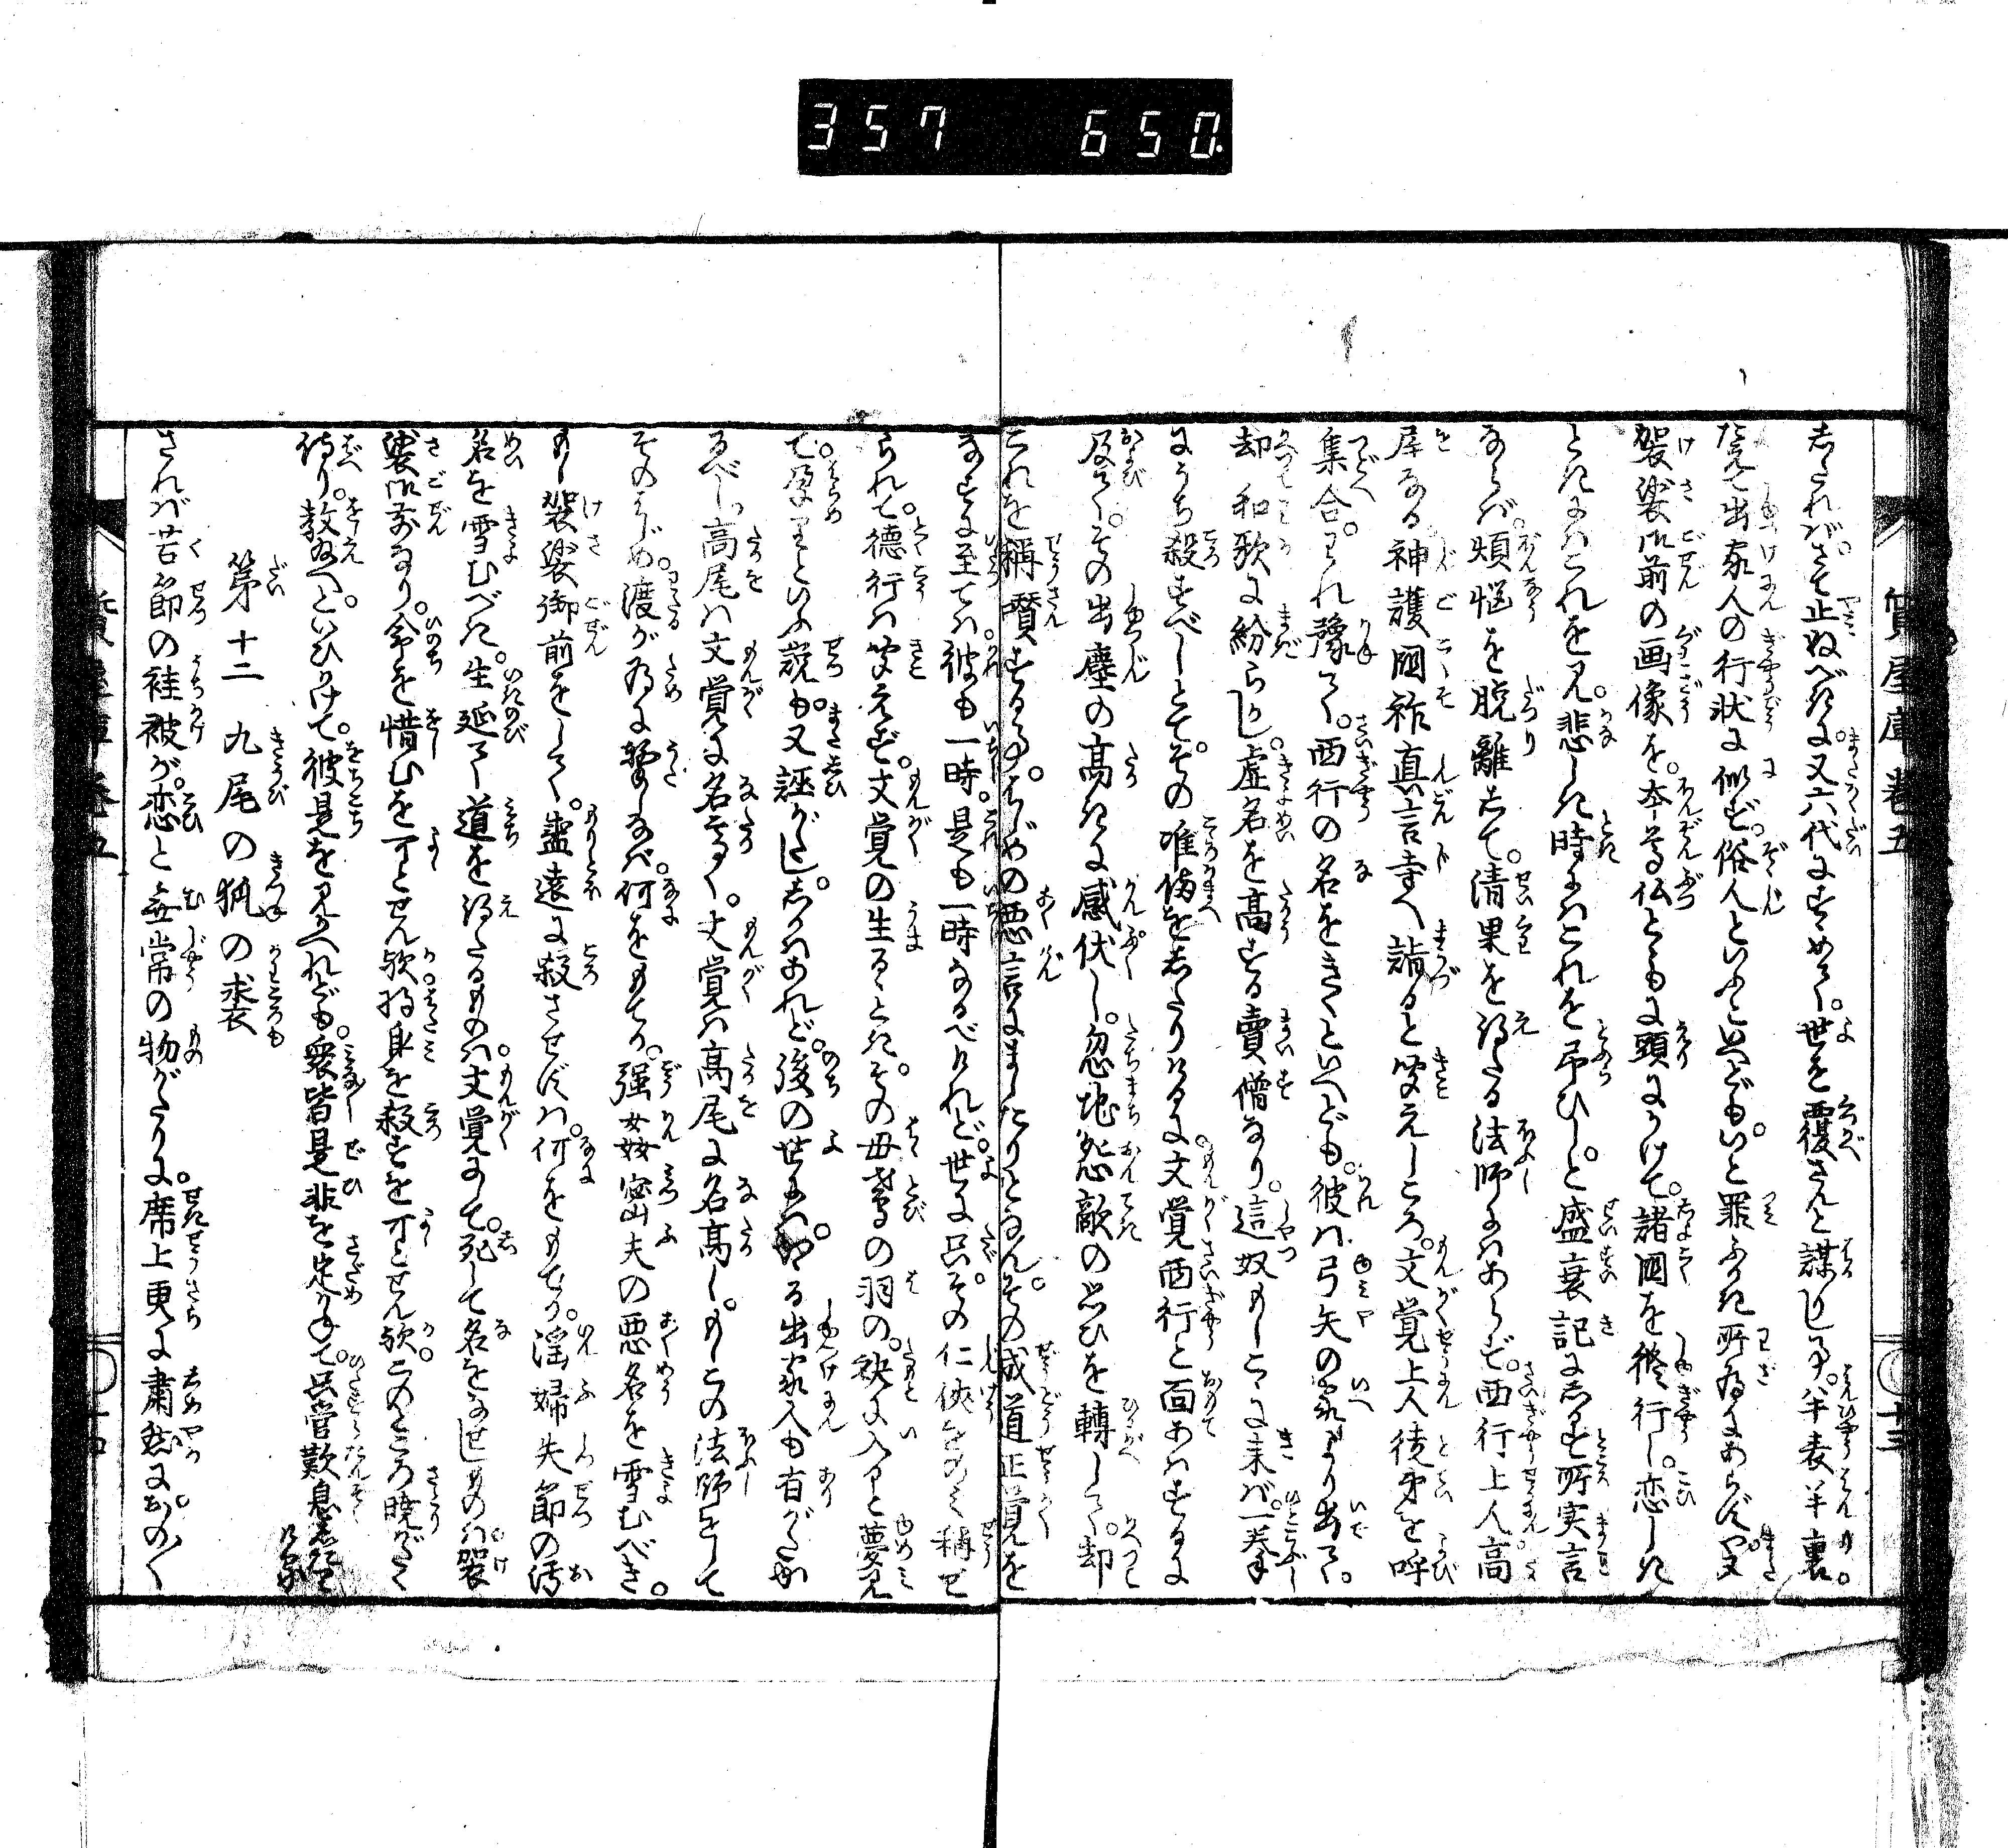 357 650.
質屋庫巻五
十三
志されバ。さて止ぬべきに。又六代にすゝめて。世を覆さんと謀りし事。半表半裏。
たえて出家人の行状に似ず。俗人といふといへども。いと罪ふかき所為にあらずや。又
袈裟御前の画像を。本尊仏とゝもに頭にかけて。諸国を修行し。恋しき
ときにハこれを見。悲しき時にハこれを弔ひしと盛衰記にしるす所実言
ならバ。煩悩を脱離して。清果を得たる法師にハあらず。西行上人高
尾なる神護国祚真言寺へ詣ると聞えしころ。文覚上人徒弟を呼
集合。われ豫て。西行の名をきくといへども。彼ハ弓矢の家より出て。
却和歌に紛らし。虚名を高する賣僧なり。這奴もしこゝに来バ。一拳
にうち殺すべしとて。その准備をしたりけるに。文覚西行と面あハするに
及びて。その出塵の高きに感伏し。忽地怨敵の思ひを轉して。却
これを稱賛する事。はじめの悪言にましたりとなん。その成道正覚を
なすに至てハ。彼も一時。是も一時なるべけれど。世に只。その仁侠をのミ稱せ
られて。徳行ハ聞えず。文覚の生るゝとき。その母鳶の羽の。袂に入ると夢見
て。孕るといふ説も。又誣がたし。しかハあれど。後の世にハ。かゝる出家人も有がたか
るべし。高尾ハ文覚に名たかく。文覚ハ高尾に名高し。もしこの法師をして
そのはじめ。渡が為に撃しなバ。何をもてか。強姦密夫の悪名を雪むべき。
もし袈裟御前をして。盛遠に殺させずハ。何をもてか。淫婦失節の汚
名を雪むべき。生延て道を得たるものハ。文覚にして。死して名をなせしものハ袈
裟御前なり。命を惜むを可とせん歟。将身を殺すを可とせん歟。このところ暁がたく
侍り。教給へ。といひかけて。彼是を見かへれども。衆皆是非を定めかねて。只管歎息
第十二 九尾の狐の裘
されバ苦節の袿被が。恋と無常の物がたりに。席上更に粛然に。おの〱
質屋庫巻五